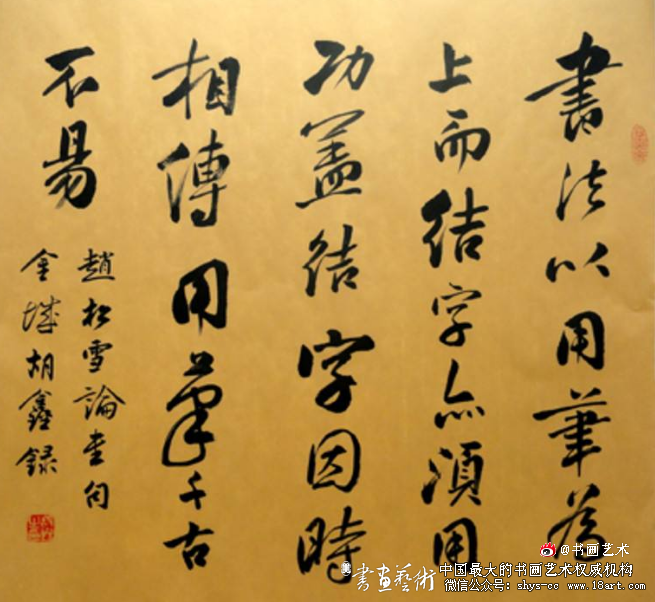 書法以用筆為
上而結字亦須用
功蓋結字因時
相傳用筆千古
不易
趙松雪論書句
金城胡鑫録
書画藝術
@书画艺术
中国最大的书画艺术权威机构
微信公众号：shys-cc www.18art.com